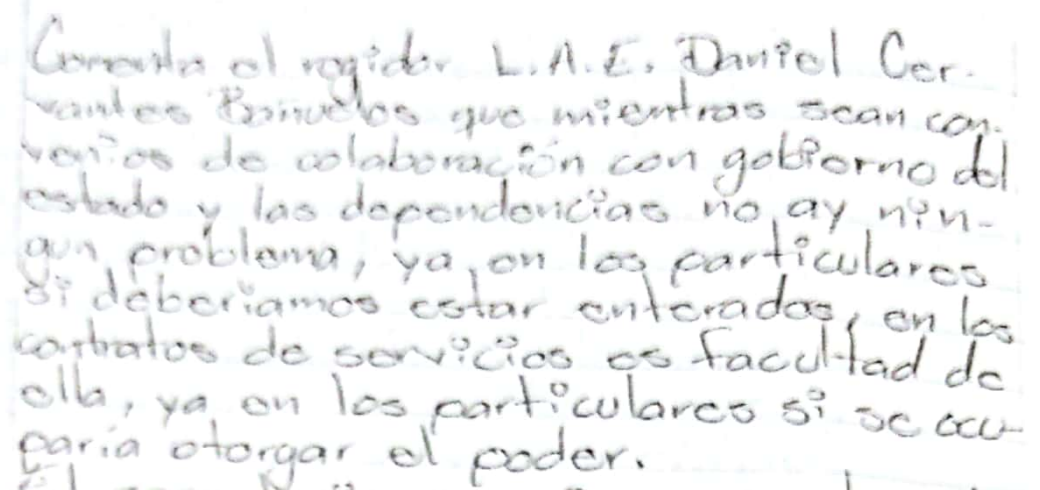 Comenta el regidor L.A.E. Daniel Cer-
vantes Bañuelos que mientras sean con-
venios de colaboración con gobierno del
estado y las dependencias no ay nin-
gun problema, ya en los particulares
si deberiamos estar enterados, en los
contratos de servicios es facultad de
ella, ya en los particulares si se ocu-
paria otorgar el poder.